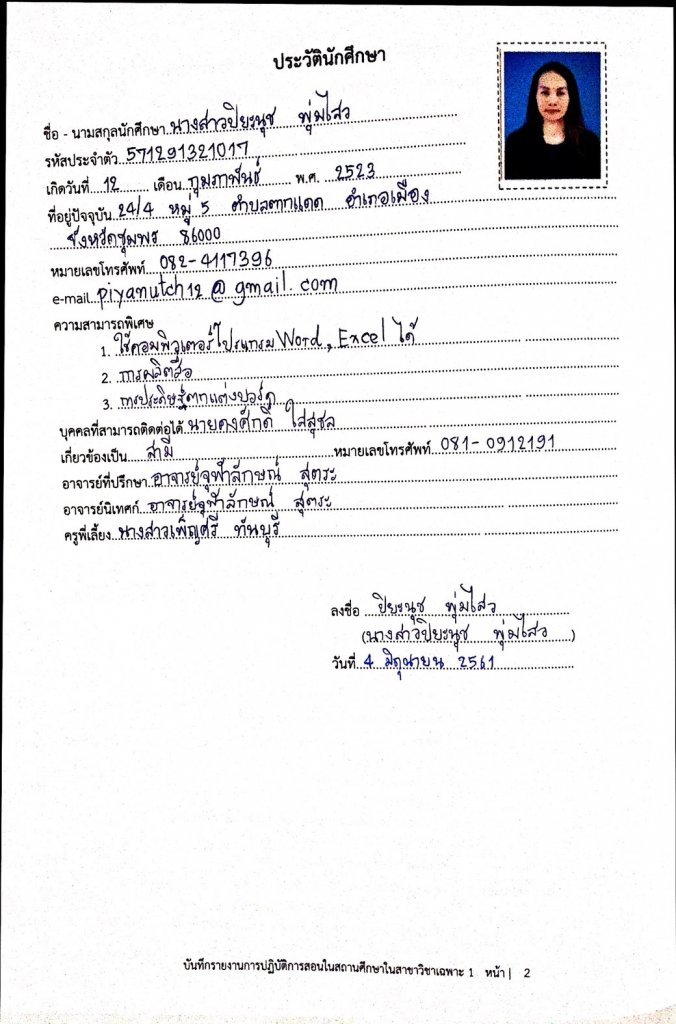 ประวัตินักศึกษา
ชื่อ - นามสกุลนักศึกษา นางสาวปิยะนุช พุ่มไสว
รหัสประจำตัว 571291321017
เกิดวันที่ 12 เดือน กุมภาพันธ์ พ.ศ. 2523
ที่อยู่ปัจจุบัน 24/4 หมู่ 5 ตำบลตากแดด อำเภอเมือง
จังหวัดชุมพร 86000
หมายเลขโทรศัพท์ 082-4117396
e-mail piyanutch12@gmail.com
ความสามารถพิเศษ
1. ใช้คอมพิวเตอร์โปรแกรม Word, Excel ได้
2. การผลิตสื่อ
3. การประดิษฐ์ตกแต่งบอร์ด
บุคคลที่สามารถติดต่อได้ นายคงศักดิ์ ใสสุชล
เกี่ยวข้องเป็น สามี หมายเลขโทรศัพท์ 081-0912191
อาจารย์ที่ปรึกษา อาจารย์จุฬาลักษณ์ สุตระ
อาจารย์นิเทศก์ อาจารย์จุฬาลักษณ์ สุตระ
ครูพี่เลี้ยง นางสาวเพ็ญศรี ทันบุรี
ลงชื่อ ปิยะนุช พุ่มไสว
(นางสาวปิยะนุช พุ่มไสว)
วันที่ 4 มิถุนายน 2561
บันทึกรายงานการปฏิบัติการสอนในสถานศึกษาในสาขาวิชาเฉพาะ 1 หน้า | 2